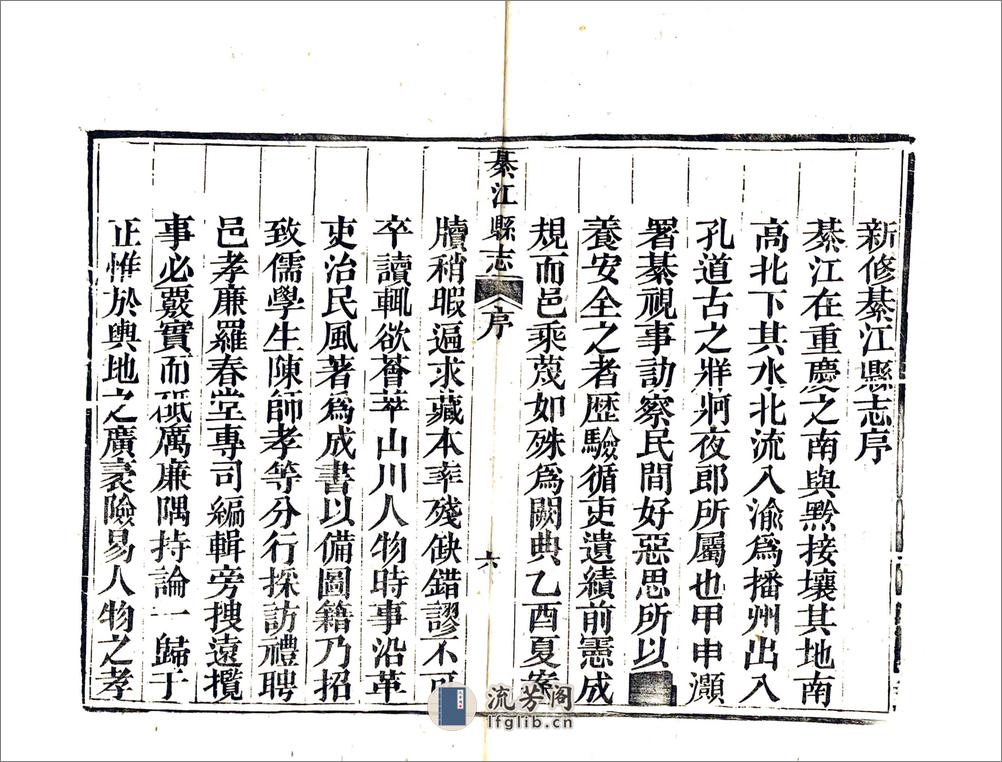 新修綦江縣志序
綦江在重慶之南與黔接壤其地南
高北下其水北流入渝為播州出入
孔道古之牂牁夜郎所屬也甲申灝
署綦視事訪察民間好惡思所以
養安全之者歷驗循吏遺績前憲成
規而邑乘蔑如殊為闕典乙酉夏案
綦江縣志
序
六
牘稍暇遍求藏本率殘缺錯謬不可
卒讀輒欲薈萃山川人物時事沿革
吏治民風著為成書以備圖籍乃招
致儒學生陳師孝等分行採訪禮聘
邑孝廉羅春堂專司編輯旁搜遠攬
事必覈實而砥厲廉隅持論一歸于
正惟於輿地之廣袤險易人物之孝
流芳阁
lfglib.cn